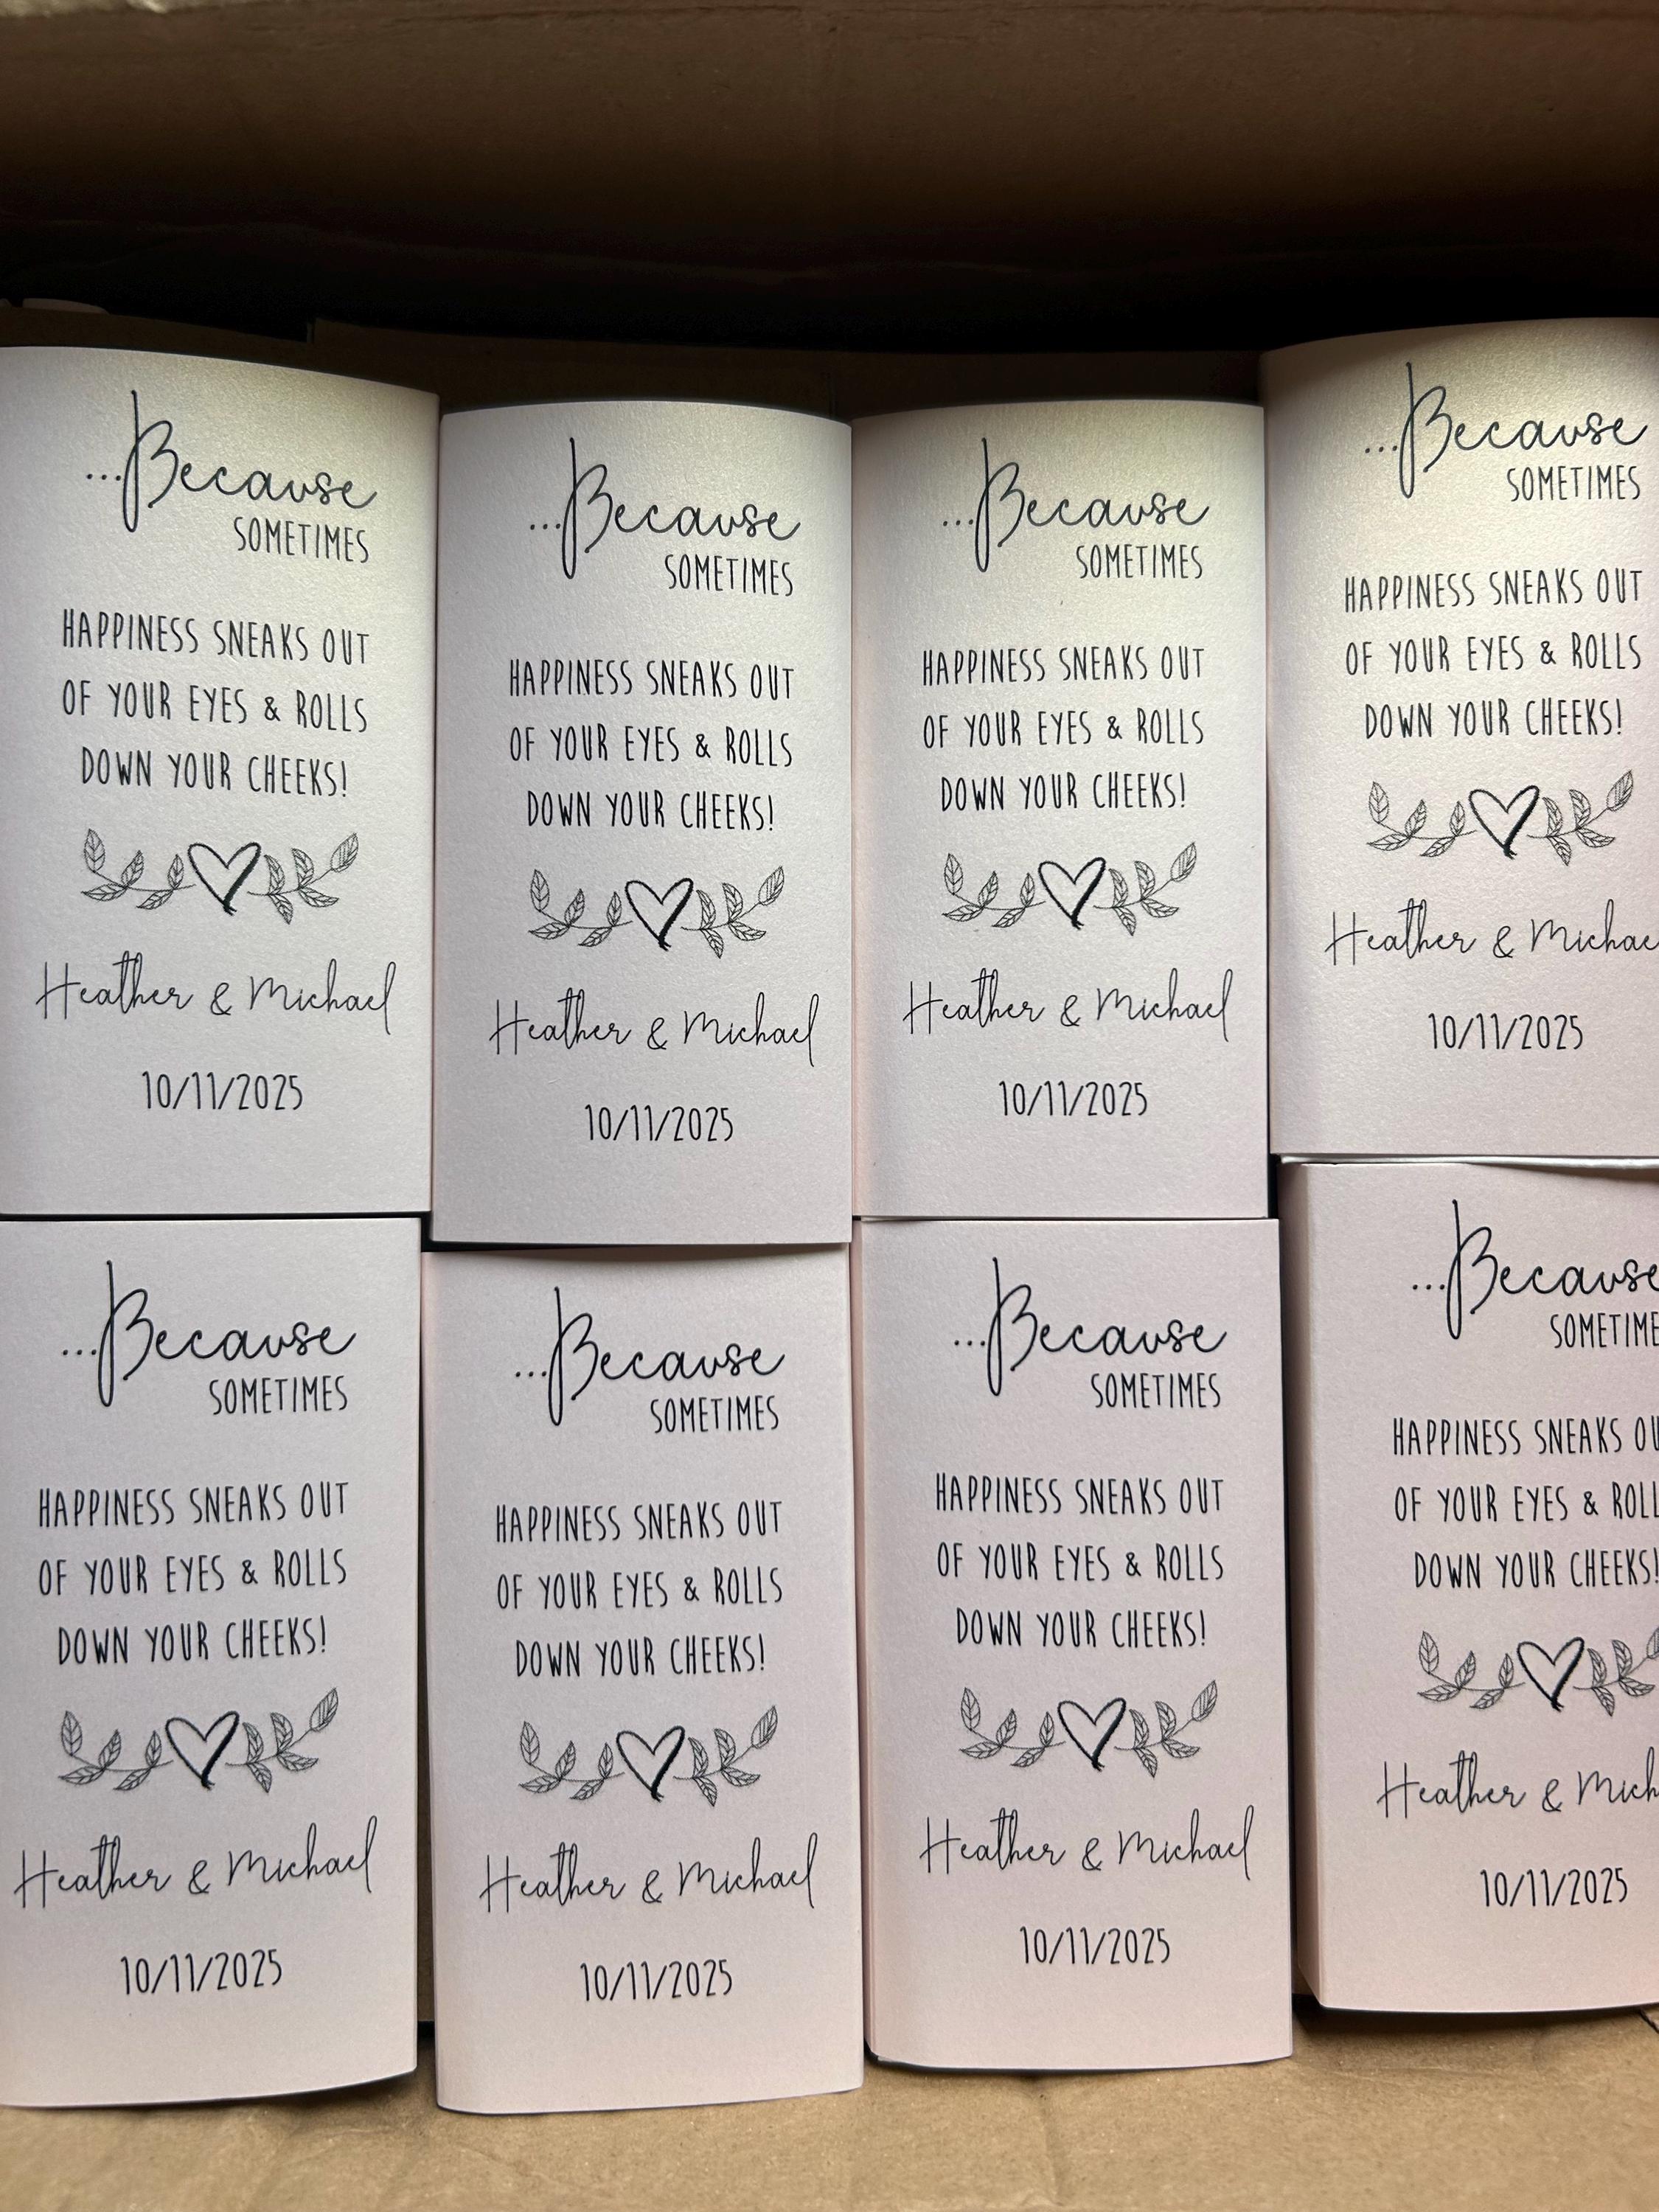 ...Because
SOMETIMES
HAPPINESS SNEAKS OUT
OF YOUR EYES & ROLLS
DOWN YOUR CHEEKS!
Heather & Michael
10/11/2025
...Because
SOMETIMES
HAPPINESS SNEAKS OUT
OF YOUR EYES & ROLLS
DOWN YOUR CHEEKS!
Heather & Michael
10/11/2025
...Because
SOMETIMES
HAPPINESS SNEAKS OUT
OF YOUR EYES & ROLLS
DOWN YOUR CHEEKS!
Heather & Michael
10/11/2025
...Because
SOMETIMES
HAPPINESS SNEAKS OUT
OF YOUR EYES & ROLLS
DOWN YOUR CHEEKS!
Heather & Michae
10/11/2025
...Because
SOMETIMES
HAPPINESS SNEAKS OUT
OF YOUR EYES & ROLLS
DOWN YOUR CHEEKS!
Heather & Michael
10/11/2025
...Because
SOMETIMES
HAPPINESS SNEAKS OUT
OF YOUR EYES & ROLLS
DOWN YOUR CHEEKS!
Heather & Michael
10/11/2025
...Because
SOMETIMES
HAPPINESS SNEAKS OUT
OF YOUR EYES & ROLLS
DOWN YOUR CHEEKS!
Heather & Michael
10/11/2025
...Because
SOMETIME
HAPPINESS SNEAKS OU
OF YOUR EYES & ROLL
DOWN YOUR CHEEKS!
Heather & Mich
10/11/2025